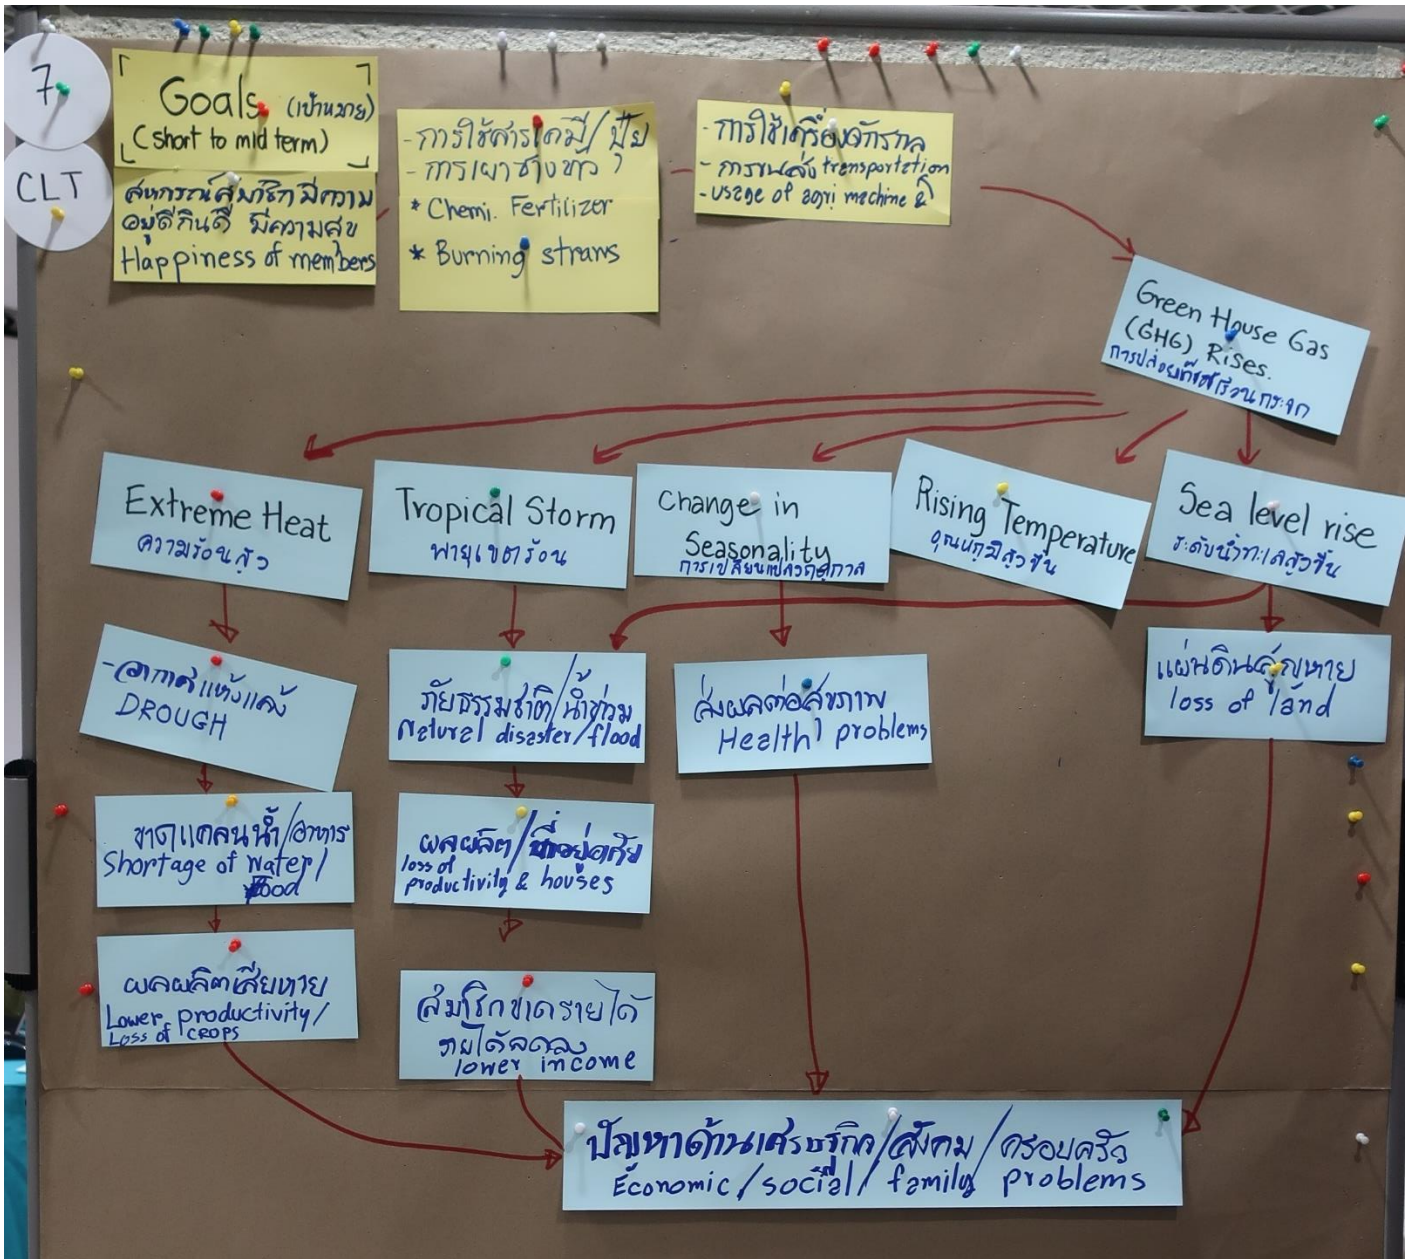 7
CLT
Goals (เป้าหมาย)
(short to mid term)
สหกรณ์สมาชิกมีความ
อยู่ดีกินดี มีความสุข
Happiness of members
- การใช้สารเคมี/ปุ๋ย
- การเผาฟางข้าว
* Chemi. Fertilizer
* Burning straws
- การใช้เครื่องจักรกล
- การขนส่ง transportation
- usage of agri machine &
Green House Gas
(GHG) Rises.
การปล่อยก๊าซเรือนกระจก
Extreme Heat
ความร้อนสูง
Tropical Storm
พายุเขตร้อน
Change in
Seasonality
การเปลี่ยนแปลงฤดูกาล
Rising Temperature
อุณหภูมิสูงขึ้น
Sea level rise
ระดับน้ำทะเลสูงขึ้น
- อากาศแห้งแล้ง
DROUGH
ภัยธรรมชาติ/น้ำท่วม
Natural disaster/flood
ส่งผลต่อสุขภาพ
Health problems
แผ่นดินสูญหาย
loss of land
ขาดแคลนน้ำ/อาหาร
Shortage of water/
food
ผลผลิต/ที่อยู่อาศัย
loss of
productivity & houses
ผลผลิตเสียหาย
Lower productivity/
Loss of CROPS
สมาชิกขาดรายได้
รายได้ลดลง
lower income
ปัญหาด้านเศรษฐกิจ/สังคม/ครอบครัว
Economic/social/family problems